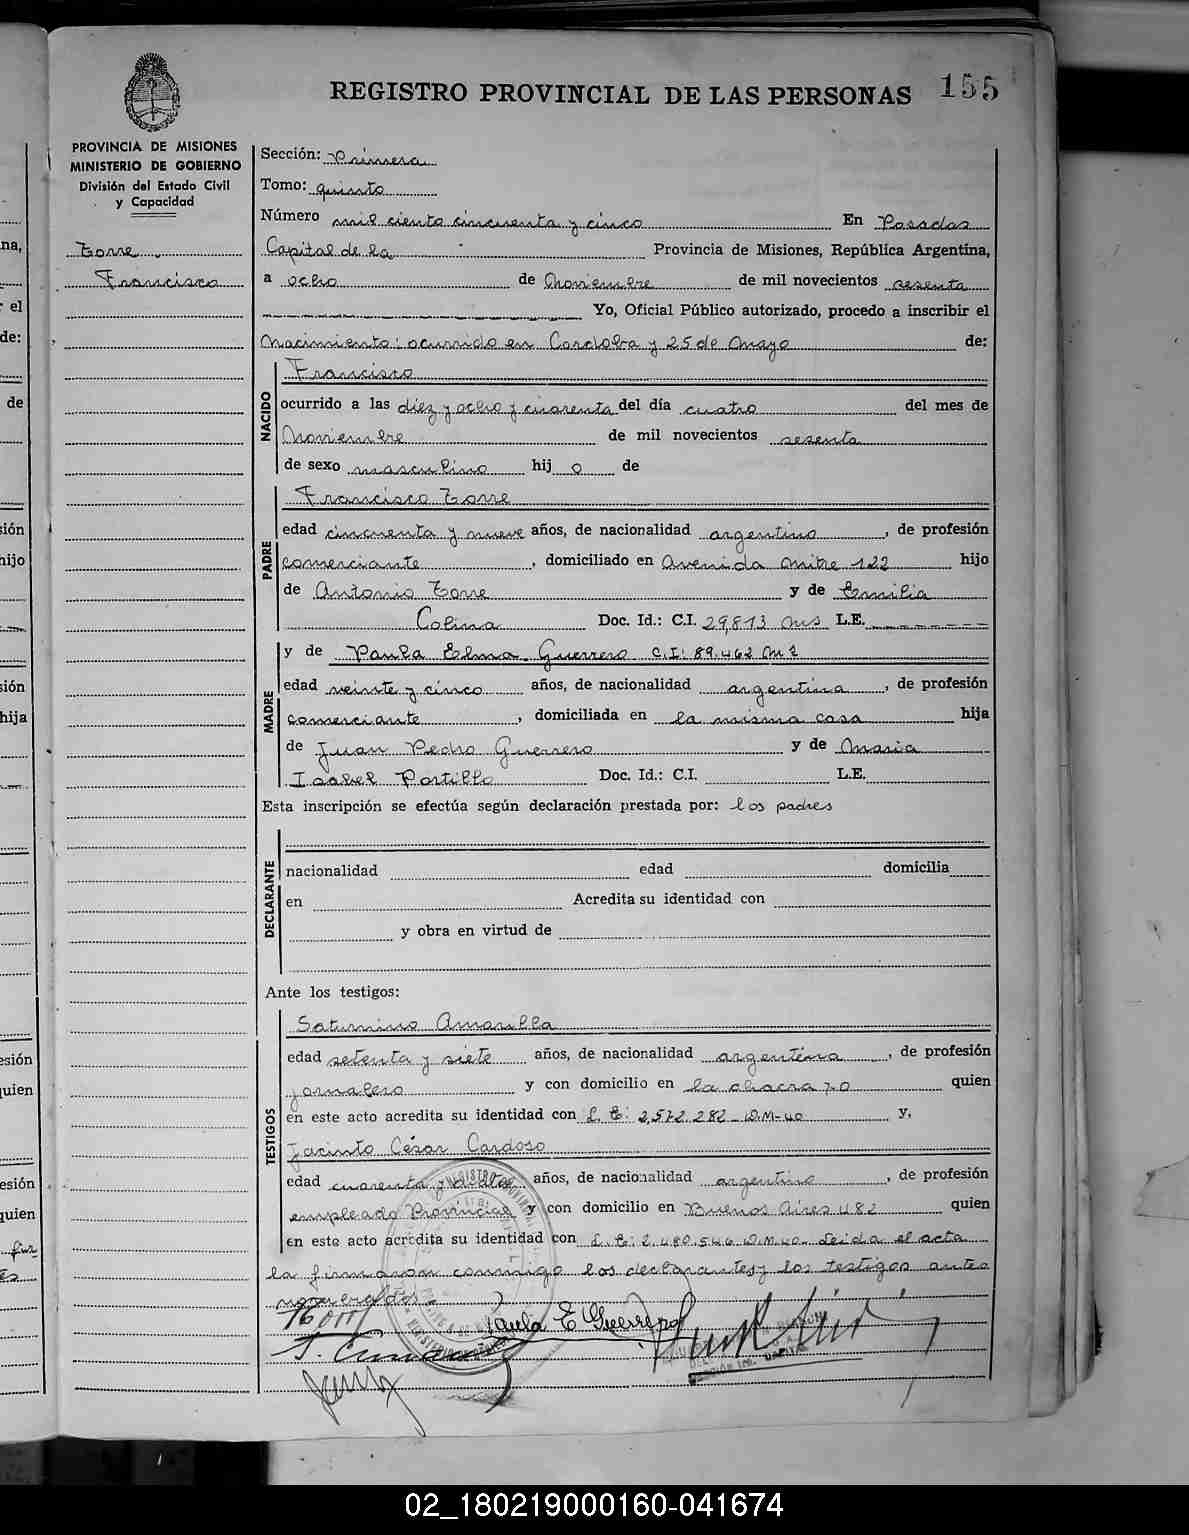 REGISTRO PROVINCIAL DE LAS PERSONAS 155
PROVINCIA DE MISIONES
MINISTERIO DE GOBIERNO
División del Estado Civil
y Capacidad
Torre
Francisco
Sección: Primera
Tomo: quinto
Número mil ciento cincuenta y cinco En Posadas
Capital de la Provincia de Misiones, República Argentina,
a ocho de Noviembre de mil novecientos sesenta
Yo, Oficial Público autorizado, procedo a inscribir el
Nacimiento: ocurrido en Cordoba y 25 de Mayo de:
NACIDO
Francisco
ocurrido a las diez y ocho y cuarenta del día cuatro del mes de
Noviembre de mil novecientos sesenta
de sexo masculino hij o de
PADRE
Francisco Torre
edad cincuenta y nueve años, de nacionalidad argentino, de profesión
comerciante, domiciliado en Avenida Mitre 122 hijo
de Antonio Torre y de Emilia
Colina Doc. Id.: C.I. 29,813 Mns L.E.
MADRE
y de Paula Elma Guerrero C.I: 89.462 Mns
edad veinte y cinco años, de nacionalidad argentina, de profesión
comerciante, domiciliada en la misma casa hija
de Juan Pedro Guerrero y de Maria
Isabel Portillo Doc. Id.: C.I. L.E.
Esta inscripción se efectúa según declaración prestada por: los padres
DECLARANTE
nacionalidad edad domicilia
en Acredita su identidad con
y obra en virtud de
Ante los testigos:
TESTIGOS
Saturnino Amarilla
edad setenta y siete años, de nacionalidad argentina, de profesión
jornalero y con domicilio en la chacra 70 quien
en este acto acredita su identidad con L. E: 2,572.282 - D.M-40 y,
Jacinto César Cardoso
edad cuarenta y años, de nacionalidad argentino, de profesión
empleado Provincial y con domicilio en Buenos Aires 482 quien
en este acto acredita su identidad con L. E: 2.480.546 D.M.40. Leida el acta
la firmaron conmigo los declarantes y los testigos antes
nombrados.
Paula E Guerrero
02_180219000160-041674